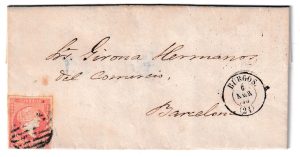 Srs. Girona Hermanos
del Comercio
Barcelona
BURGOS
6
(21)